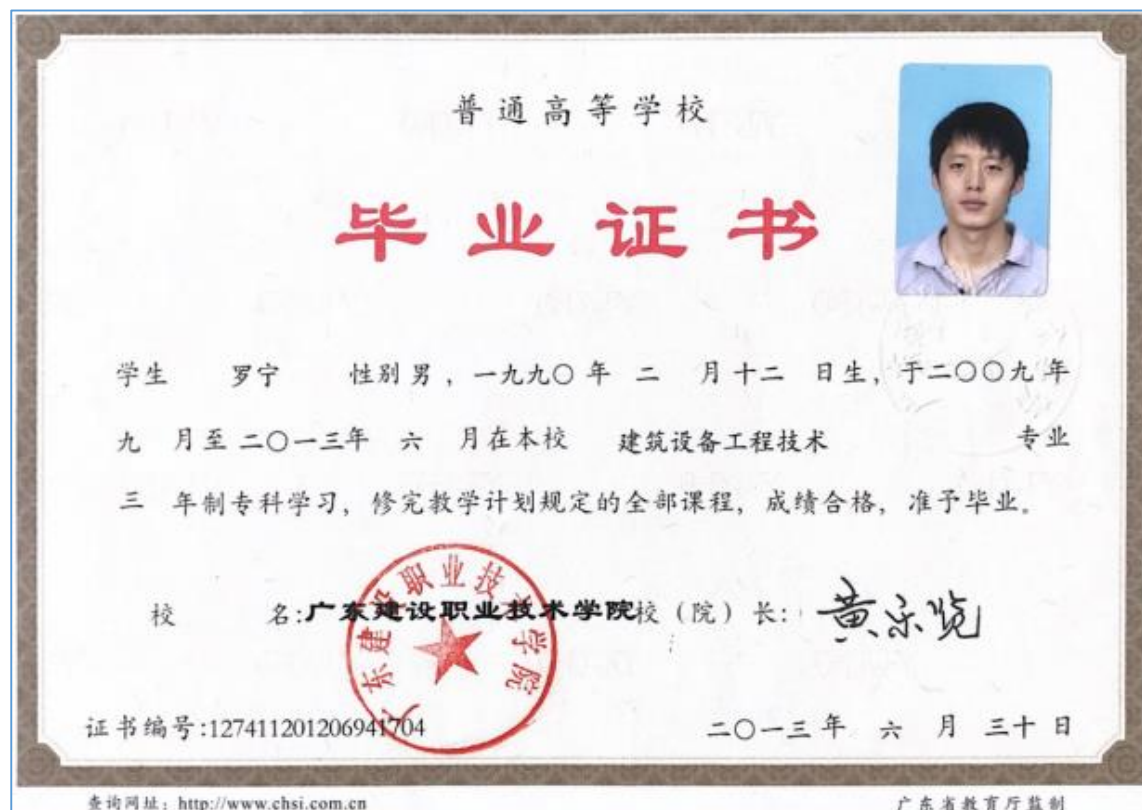 普通高等学校
毕业证书
学生 罗宁 性别 男，一九九〇年 二 月十二 日生，于二〇〇九年
九 月至二〇一三年 六 月在本校 建筑设备工程技术 专业
三 年制专科学习，修完教学计划规定的全部课程，成绩合格，准予毕业。
校 名:广东建设职业技术学院校（院）长: 黄乐览
广东建设职业技术学院
证书编号:127411201206941704 二〇一三年 六 月 三十 日
查询网址：http://www.chsi.com.cn 广东省教育厅监制